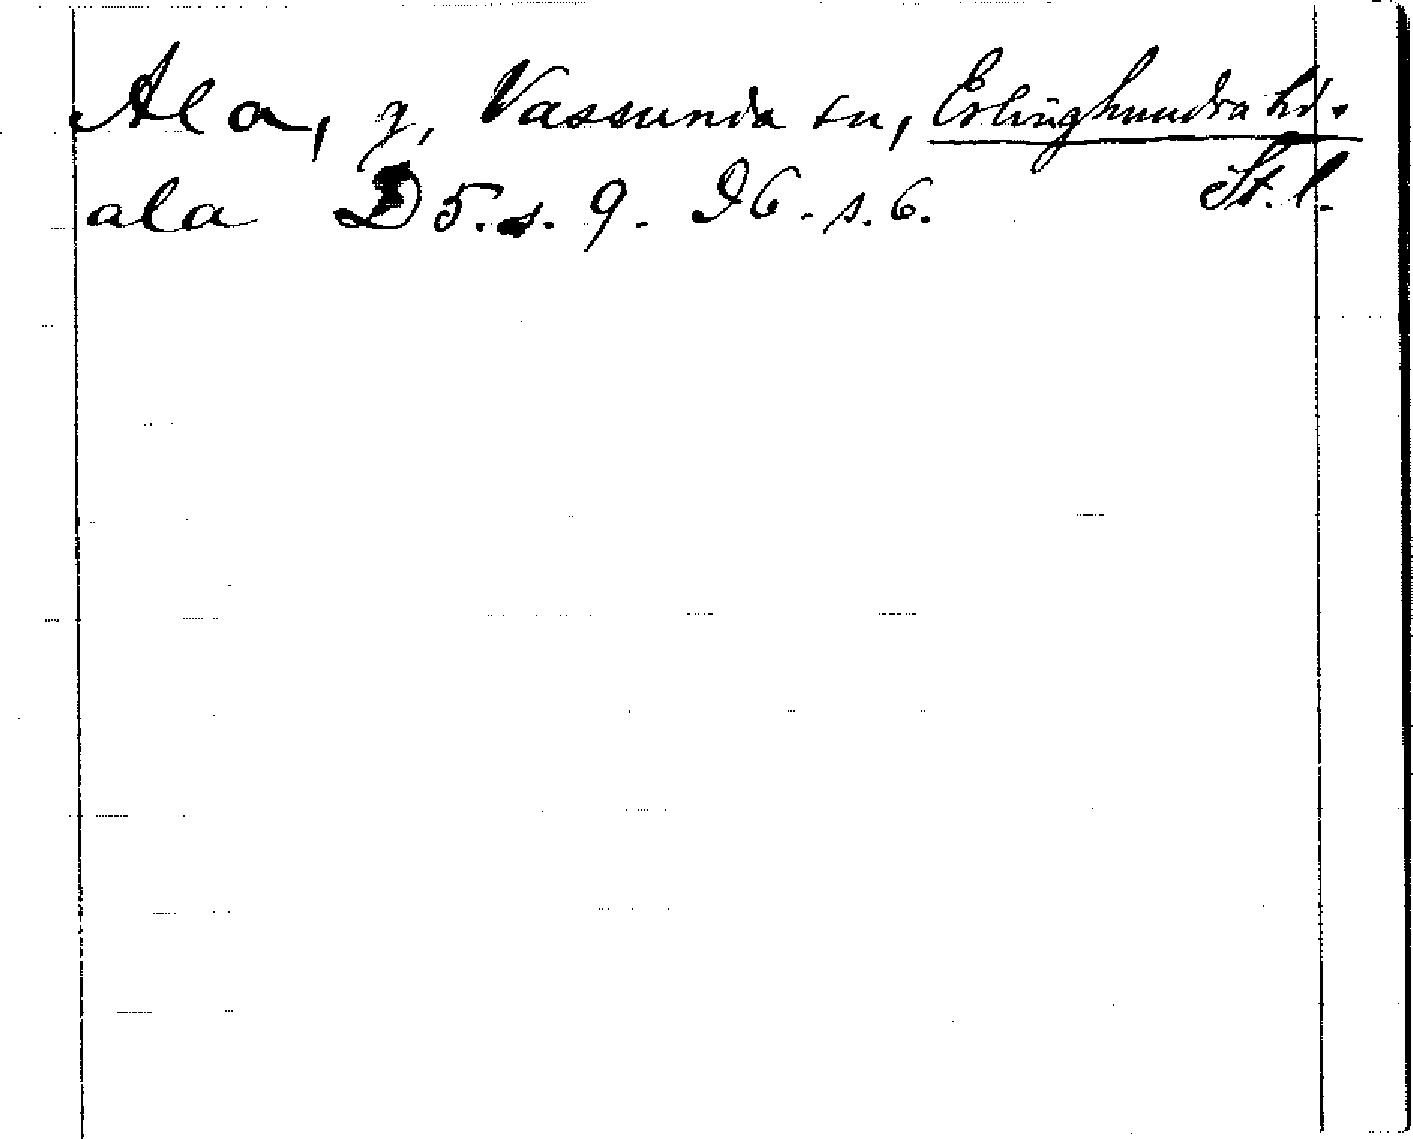 Ala, g, Vassunda sn, Erlinghundra hd.
ala D 5. s. 9. D6. s. 6. St. l.